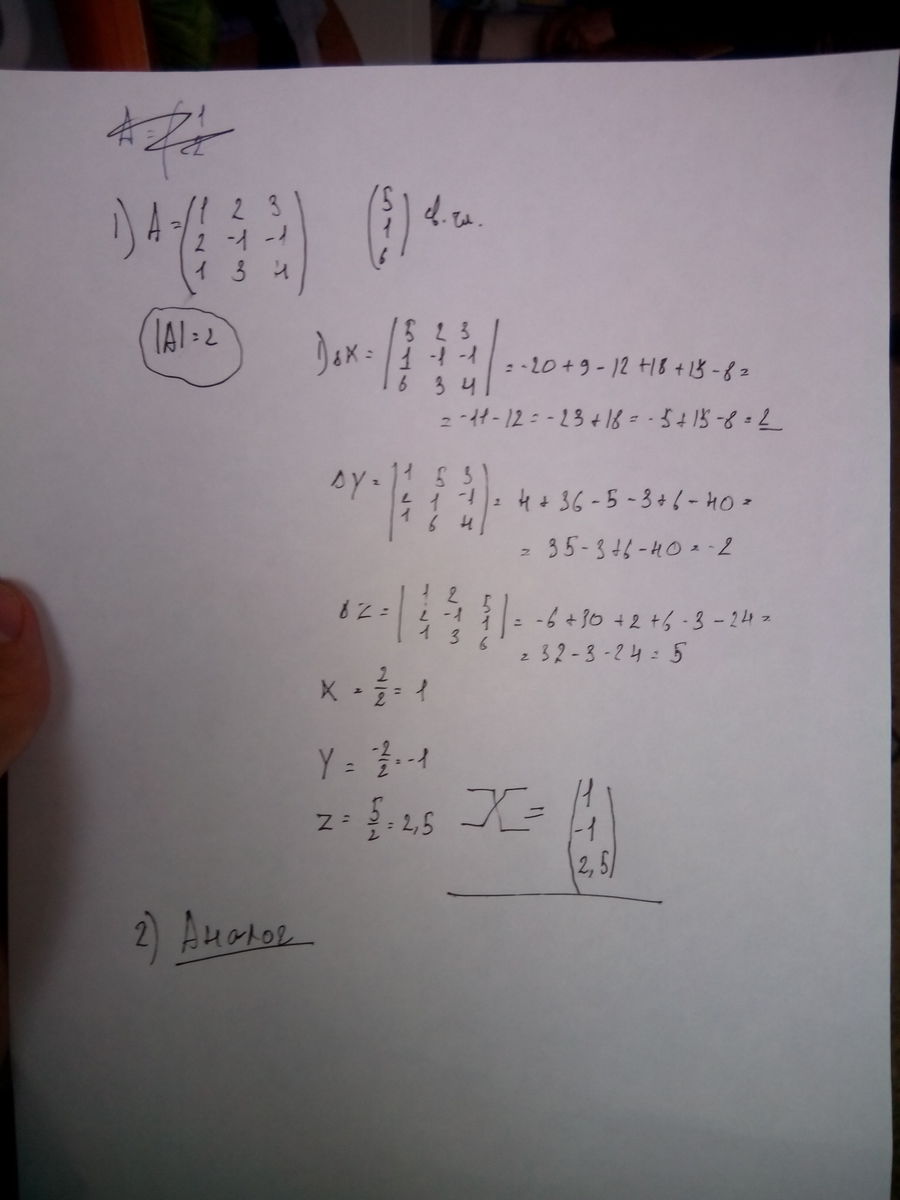 1) A = (1 2 3
2 -1 -1
1 3 4)
(5
1
6) св. чл.
|A| = 2
1) ΔX = |5 2 3
1 -1 -1
6 3 4| = -20 + 9 - 12 + 18 + 15 - 8 =
= -11 - 12 = -23 + 18 = -5 + 15 - 8 = 2
ΔY = |1 5 3
2 1 -1
1 6 4| = 4 + 36 - 5 - 3 + 6 - 40 =
= 35 - 3 + 6 - 40 = -2
ΔZ = |1 2 5
2 -1 1
1 3 6| = -6 + 30 + 2 + 6 - 3 - 24 =
= 32 - 3 - 24 = 5
X = 2/2 = 1
Y = -2/2 = -1
Z = 5/2 = 2,5
X = (1
-1
2,5)
2) Аналог